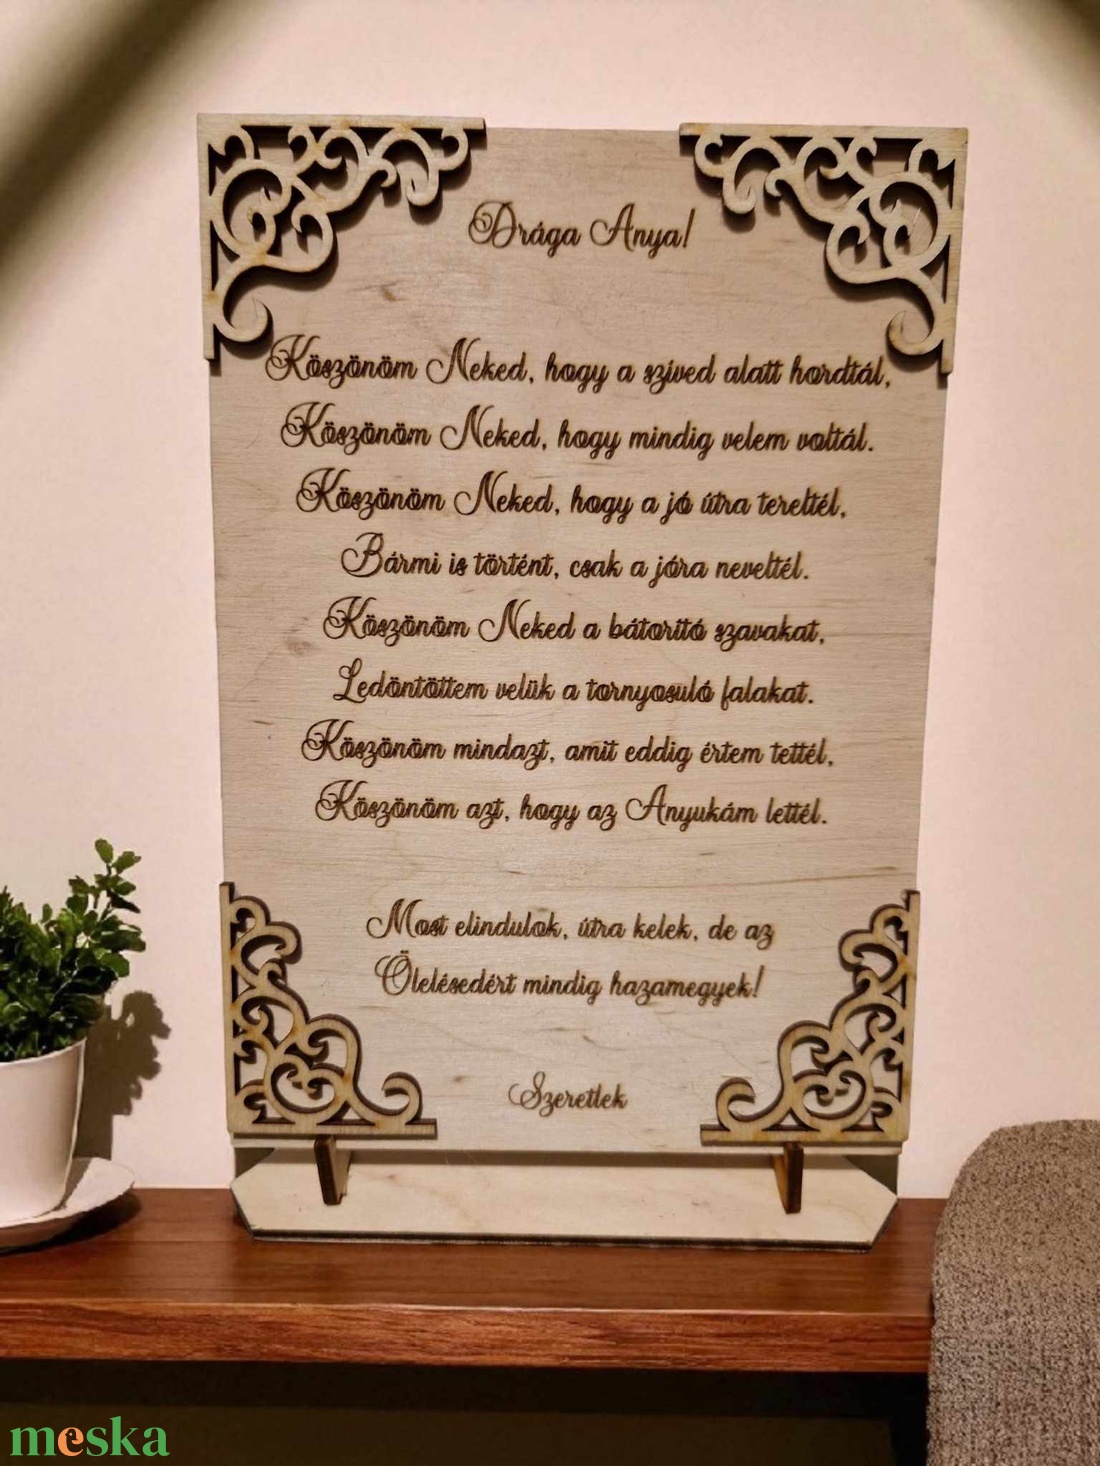 Drága Anya!
Köszönöm Neked, hogy a szived alatt hordtál,
Köszönöm Neked, hogy mindig velem voltál.
Köszönöm Neked, hogy a jó útra tereltél,
Bármi is történt, csak a jóra neveltél.
Köszönöm Neked a bátorító szavakat,
Ledöntöttem velük a tornyosuló falakat.
Köszönöm mindazt, amit eddig értem tettél,
Köszönöm azt, hogy az Anyukám lettél.
Most elindulok, útra kelek, de az
Ölelésedért mindig hazamegyek!
Szeretlek
meska